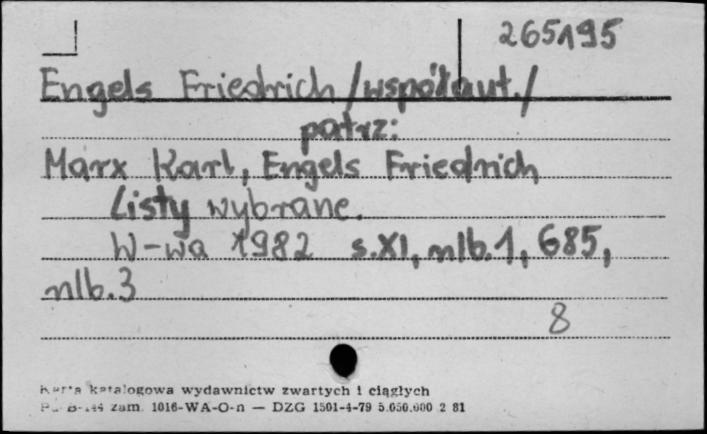 265195
Engels Friedrich /współaut./
patrz:
Marx Karl, Engels Friedrich
Listy wybrane.
W-wa 1982 s.XI, nlb.1, 685,
nlb.3
8
Karta katalogowa wydawnictw zwartych i ciągłych
zam. 1016-WA-O-n — DZG 1501-4-79 5.050.000 2 81